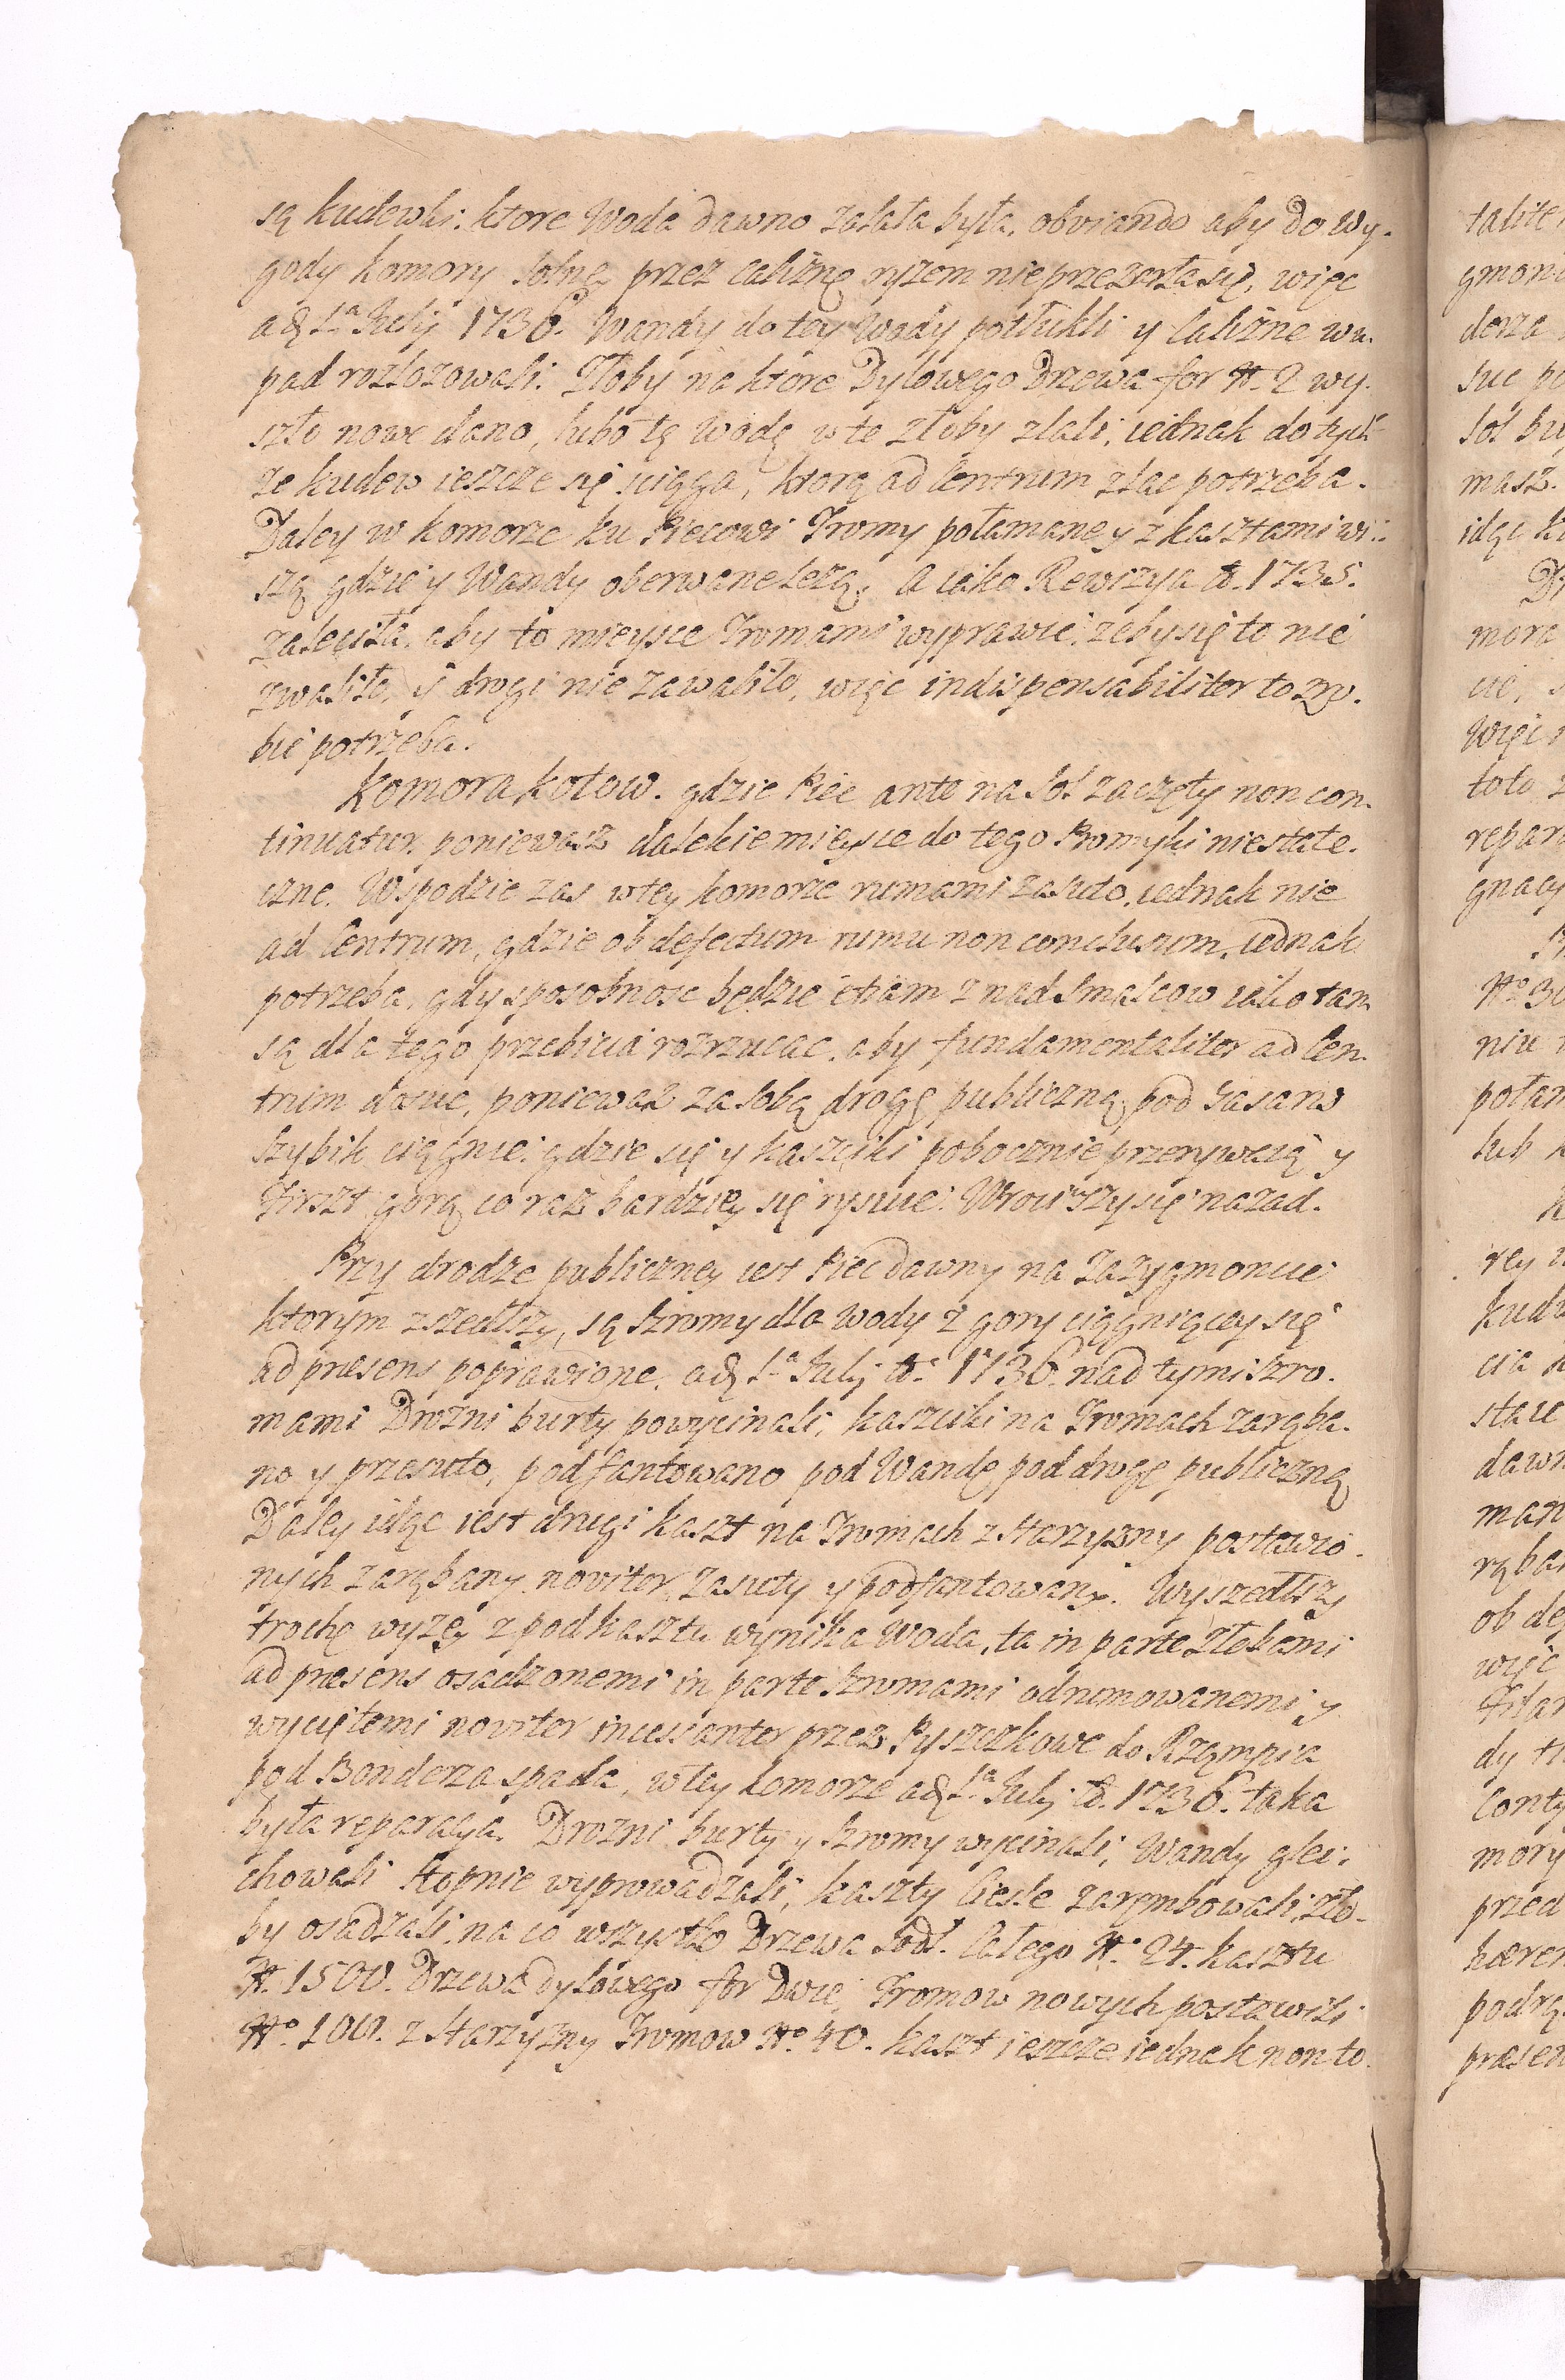 są kudewki: ktore Woda dawno zalała była, obviando aby do wy-
gody komory Solne przez calizne ryzem nie przezarła się, więc
ad 1ª Julij 1736. Wandy do tey Wody potłukli y calizne wu-
pad rozlozowali. Złoby na ktore Dylowego Drzewa for Nº. 2 wy-
szło nowe dano, lubo tę wodę w te złoby zlali, iednak do tych-
ze kudew ieszcze się sciąga, ktorą ad Centrum zlac potrzeba.
Daley w komorze ku Piecowi Tromy połamane y z kasztami wi-
szą gdzie y Wandy oberwane lezą. A iako Rewizya Aº. 1735.
zaleciła, aby to mieysce Tromami wyprawic, zeby się to nie
zwaliło, y drogi nie zawaliło, więc indispensabiliter to zro-
bic potrzeba.
Komora Kotow. gdzie Piec ante na Sol zaczęty non con-
tinuatur, poniewasz dalekie mieysce do tego Promyki niestate-
czne. Wspodzie zas w tey komorze rumami zasuto, iednak nie
ad Centrum, gdzie ob defectum rumu non conclusum, iednak
potrzeba, gdy sposobnosc będzie etiam z nad Smalcow iako tam
są dla tego przebicia rozrzucac, aby fundamentaliter ad Cen-
trum dosuc, poniewaz za sobą drogę publiczną pod Gasawo
Szybik ciągnie: gdzie się y kaszciki pobocznie przerywaią y
Firszt gorą co raz bardziey się rysuie: Wrociwszy się nazad.
Przy drodze publiczney iest Piec dawny na Zazygmoncie
ktorym zszedłszy, są Szromy dla wody z gory ciągniącey się
ad præsens poprawione. ad 1ª Julij Aº. 1736. nad tymi Szro-
mami Drozni burty powycinali, kaszciki na Tromach zarąba-
no y przesuto, podfantowano pod Wandę pod drogę publiczną
Daley idąc iest drugi kaszt na Tromach z starzyzny postawio-
nych zarąbany noviter, zasuty y podfantowany. Wyszedłszy
trochę wyzey z pod kasztu wynika Woda, ta in parte Złobami
ad præsens osadzonemi in parte Szromami odrumowanemi y
wyciętemi noviter incessanter przez Pyszczkowe do Rząmpia
pod Bonderza spada, w tey komorze ad 1ª Julij Aº. 1736. taka
była reparacya. Drozni burty y Szromy wycinali, Wandy glei-
chowali Stopnie wyprowadzali, kaszty Ciesle zarąmbowali, zło-
by osadzali, na co wszystko Drzewa Sodł. Całego Nº. 24. kasztu
Nº. 1500. Drzewa dylowego for Dwie, Tromow nowych postawili
Nº. 100. z starzyzny Tromow Nº. 40. kaszt ieszcze iednak non to-